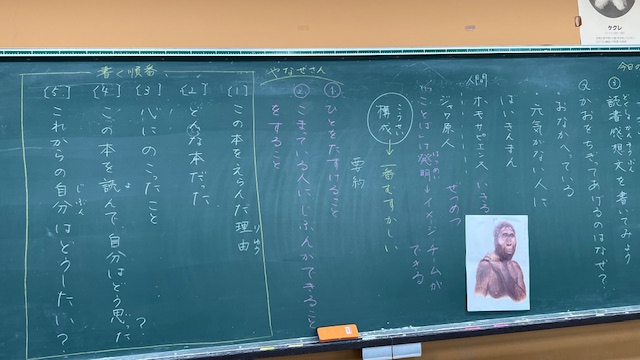 今日の
③読書感想文を書いてみよう
Q かおをちぎってあげるのはなぜ?
おなかへっている
元気がない人に
ばいきんまん
人間
ホモサピエンス いきる
ジャワ原人 ぜつめつ
ことば
発明→イメージ チームが
できる
こうせい
構成→一番むずかしい
要約
やなせさん
① ひとをたすけること
② こまっている人にじぶんができること
をすること
書く順番
[1] この本をえらんだ理由
りゆう
[2] どんな本だった
[3] 心にのこったこと
[4] この本を読んで自分はどう思った?
[5] これからの自分はどうしたい?
じぶん
ケクレ